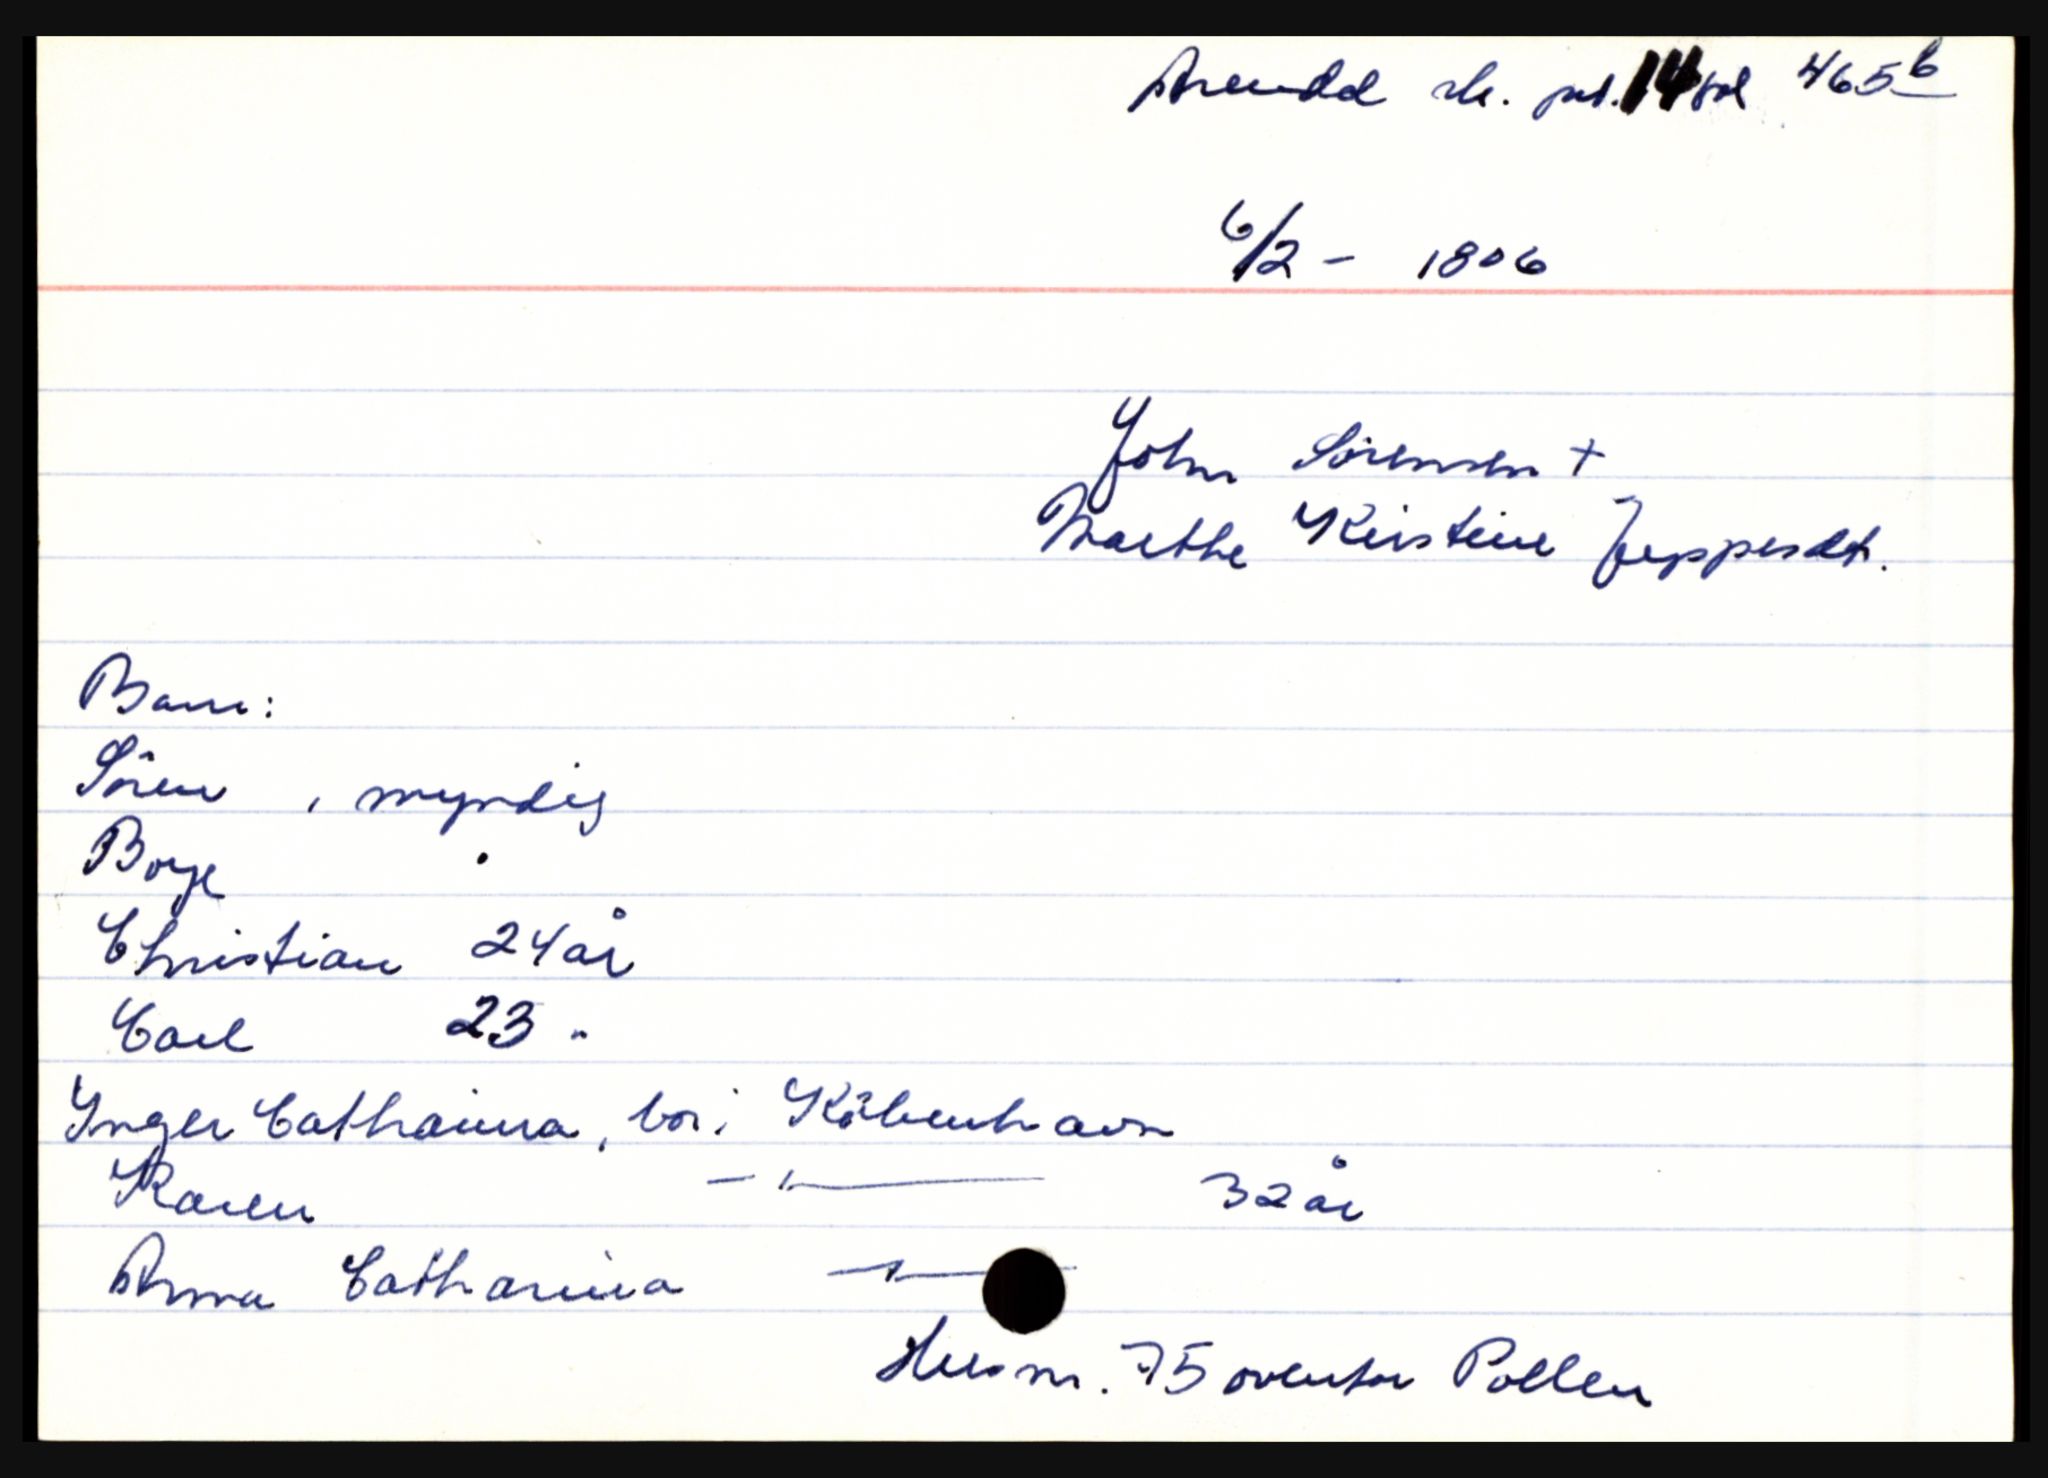 Arendal sk. prt. 14 fol 465 b
6/2 - 1806
John Sørensen +
Marthe Kirstine Jeppesdt.
Barn:
Sören , myndig
Børge "
Christian 24 år
Carl 23 "
Inger Catharina, bor i Köbenhavn
Karen — " — 32 år
Anna Catharina — " —
Hus nr. 75 ovenfor Pollen